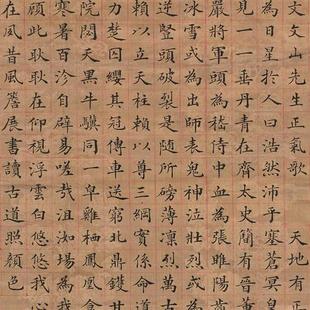 文文山先生正氣歌　天地有正
為日星於人曰浩然沛乎塞蒼冥皇
見一一垂丹青在齊太史簡有晉董
嚴將軍頭為嵇侍中血為張睢陽
冰雪或為出師表鬼神泣壯烈或為
逆豎頭破裂是隨所磅薄凜烈萬古
賴以立天柱賴以尊三綱實係命道
力楚囚纓其冠傳車送窮北鼎鑊甘
院閟天黑牛驥同一皁雞栖鳳凰食
寒暑百沴自辟易嗟哉沮洳場為我
顧此耿耿在仰視浮雲白悠悠我心
在夙昔風簷展書讀古道照顏色